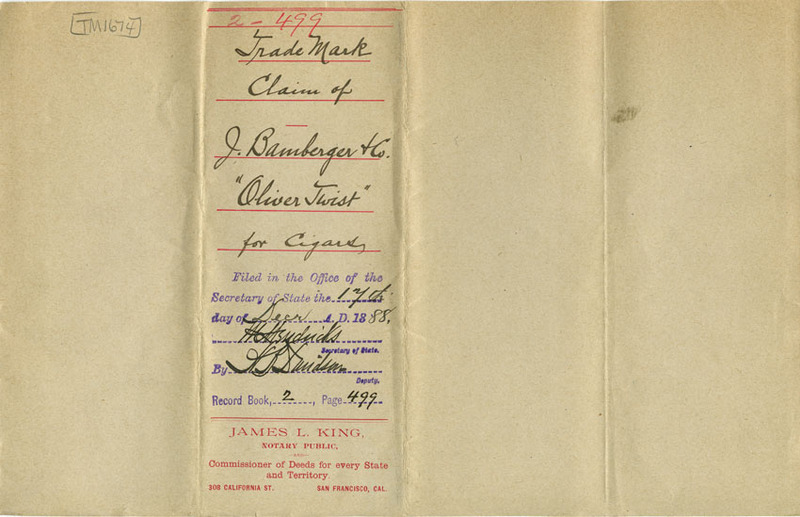 TM1674
2 - 499
Trade Mark
Claim of
J. Bamberger & Co.
"Oliver Twist"
for Cigars
Filed in the Office of the
Secretary of State the 17th
day of Decr A. D. 1888,
W Hendricks
Secretary of State.
By
Deputy.
Record Book, 2, Page 499
JAMES L. KING,
NOTARY PUBLIC,
—AND—
Commissioner of Deeds for every State
and Territory.
308 CALIFORNIA ST. SAN FRANCISCO, CAL.